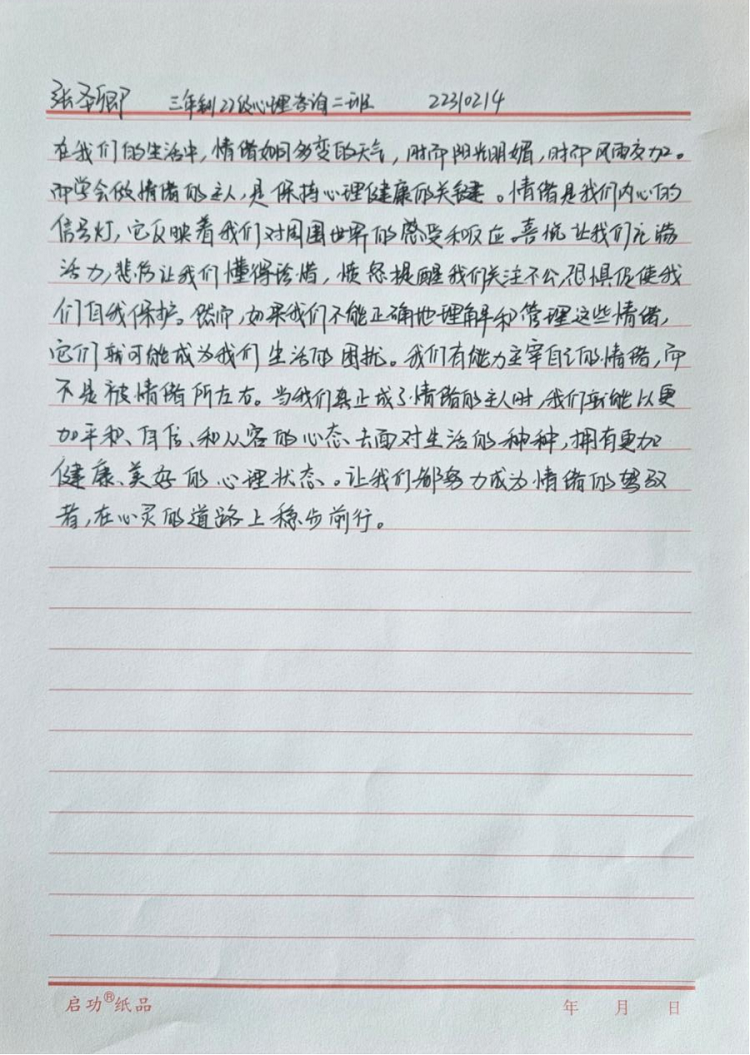 张圣卿 三年制22级心理咨询二班 22310214
在我们的生活中,情绪如同多变的天气,时而阳光明媚,时而风雨交加。
而学会做情绪的主人,是保持心理健康的关键。情绪是我们内心的
信号灯,它反映着我们对周围世界的感受和反应。喜悦让我们充满
活力,悲伤让我们懂得珍惜,愤怒提醒我们关注不公,恐惧促使我
们自我保护。然而,如果我们不能正确地理解和管理这些情绪,
它们就可能成为我们生活的困扰。我们有能力主宰自己的情绪,而
不是被情绪所左右。当我们真正成了情绪的主人时,我们就能以更
加平和、自信、和从容的心态去面对生活的种种,拥有更加
健康、美好的心理状态。让我们都努力成为情绪的驾驭
者,在心灵的道路上稳步前行。
启功®纸品 年 月 日